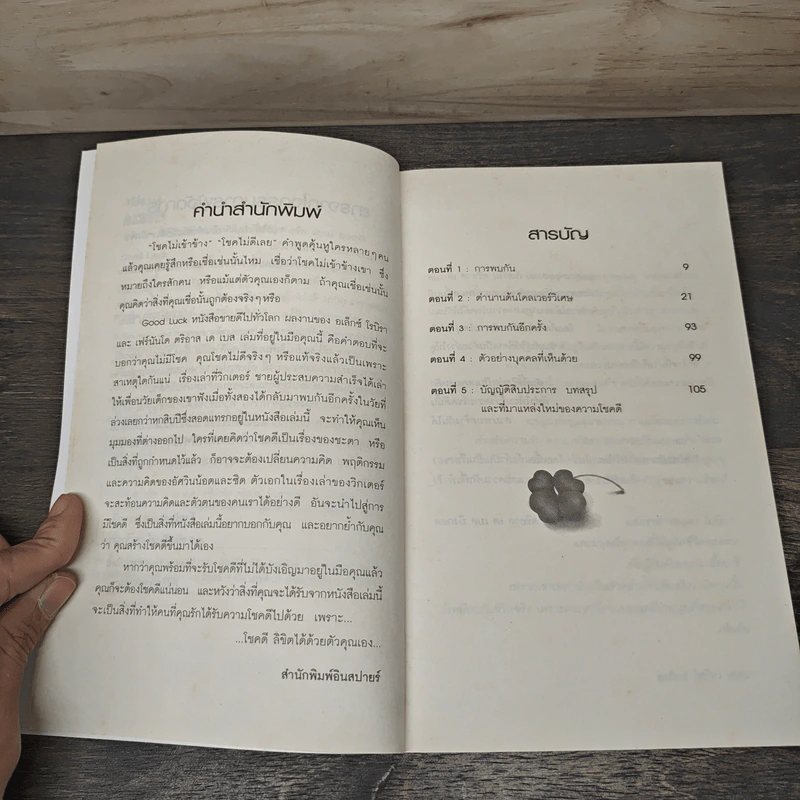 คำนำสำนักพิมพ์
"โชคไม่เข้าข้าง" "โชคไม่ดีเลย" คำพูดคุ้นหูใครหลายๆ คน
แล้วคุณเคยรู้สึกหรือเชื่อเช่นนั้นไหม เชื่อว่าโชคไม่เข้าข้างเขา ซึ่ง
หมายถึงใครสักคน หรือแม้แต่ตัวคุณเองก็ตาม ถ้าคุณเชื่อเช่นนั้น
คุณคิดว่าสิ่งที่คุณเชื่อนั้นถูกต้องจริงๆ หรือ
Good Luck หนังสือขายดีไปทั่วโลก ผลงานของ อเล็กซ์ โรบิรา
และ เฟร์นันโด ตริอาส เด เบส เล่มที่อยู่ในมือคุณนี้ คือคำตอบที่จะ
บอกว่าคุณไม่มีโชค คุณโชคไม่ดีจริงๆ หรือแท้จริงแล้วเป็นเพราะ
สาเหตุใดกันแน่ เรื่องเล่าที่วิกเตอร์ ชายผู้ประสบความสำเร็จได้เล่า
ให้เพื่อนวัยเด็กของเขาฟังเมื่อทั้งสองได้กลับมาพบกันอีกครั้งในวัยที่
ล่วงเลยกว่าหกสิบปีซึ่งสอดแทรกอยู่ในหนังสือเล่มนี้ จะทำให้คุณเห็น
มุมมองที่ต่างออกไป ใครที่เคยคิดว่าโชคดีเป็นเรื่องของชะตา หรือ
เป็นสิ่งที่ถูกกำหนดไว้แล้ว ก็อาจจะต้องเปลี่ยนความคิด พฤติกรรม
และความคิดของอัศวินน็อตและซิด ตัวเอกในเรื่องเล่าของวิกเตอร์
จะสะท้อนความคิดและตัวตนของคนเราได้อย่างดี อันจะนำไปสู่การ
มีโชคดี ซึ่งเป็นสิ่งที่หนังสือเล่มนี้อยากบอกกับคุณ และอยากย้ำกับคุณ
ว่า คุณสร้างโชคดีขึ้นมาได้เอง
หากว่าคุณพร้อมที่จะรับโชคดีที่ไม่ได้บังเอิญมาอยู่ในมือคุณแล้ว
คุณก็จะต้องโชคดีแน่นอน และหวังว่าสิ่งที่คุณจะได้รับจากหนังสือเล่มนี้
จะเป็นสิ่งที่ทำให้คนที่คุณรักได้รับความโชคดีไปด้วย เพราะ...
...โชคดี ลิขิตได้ด้วยตัวคุณเอง...
สำนักพิมพ์อินสปายร์
สารบัญ
ตอนที่ 1 : การพบกัน 9
ตอนที่ 2 : ตำนานต้นโคลเวอร์วิเศษ 21
ตอนที่ 3 : การพบกันอีกครั้ง 93
ตอนที่ 4 : ตัวอย่างบุคคลที่เห็นด้วย 99
ตอนที่ 5 : บัญญัติสิบประการ บทสรุป 105
และที่มาแหล่งใหม่ของความโชคดี